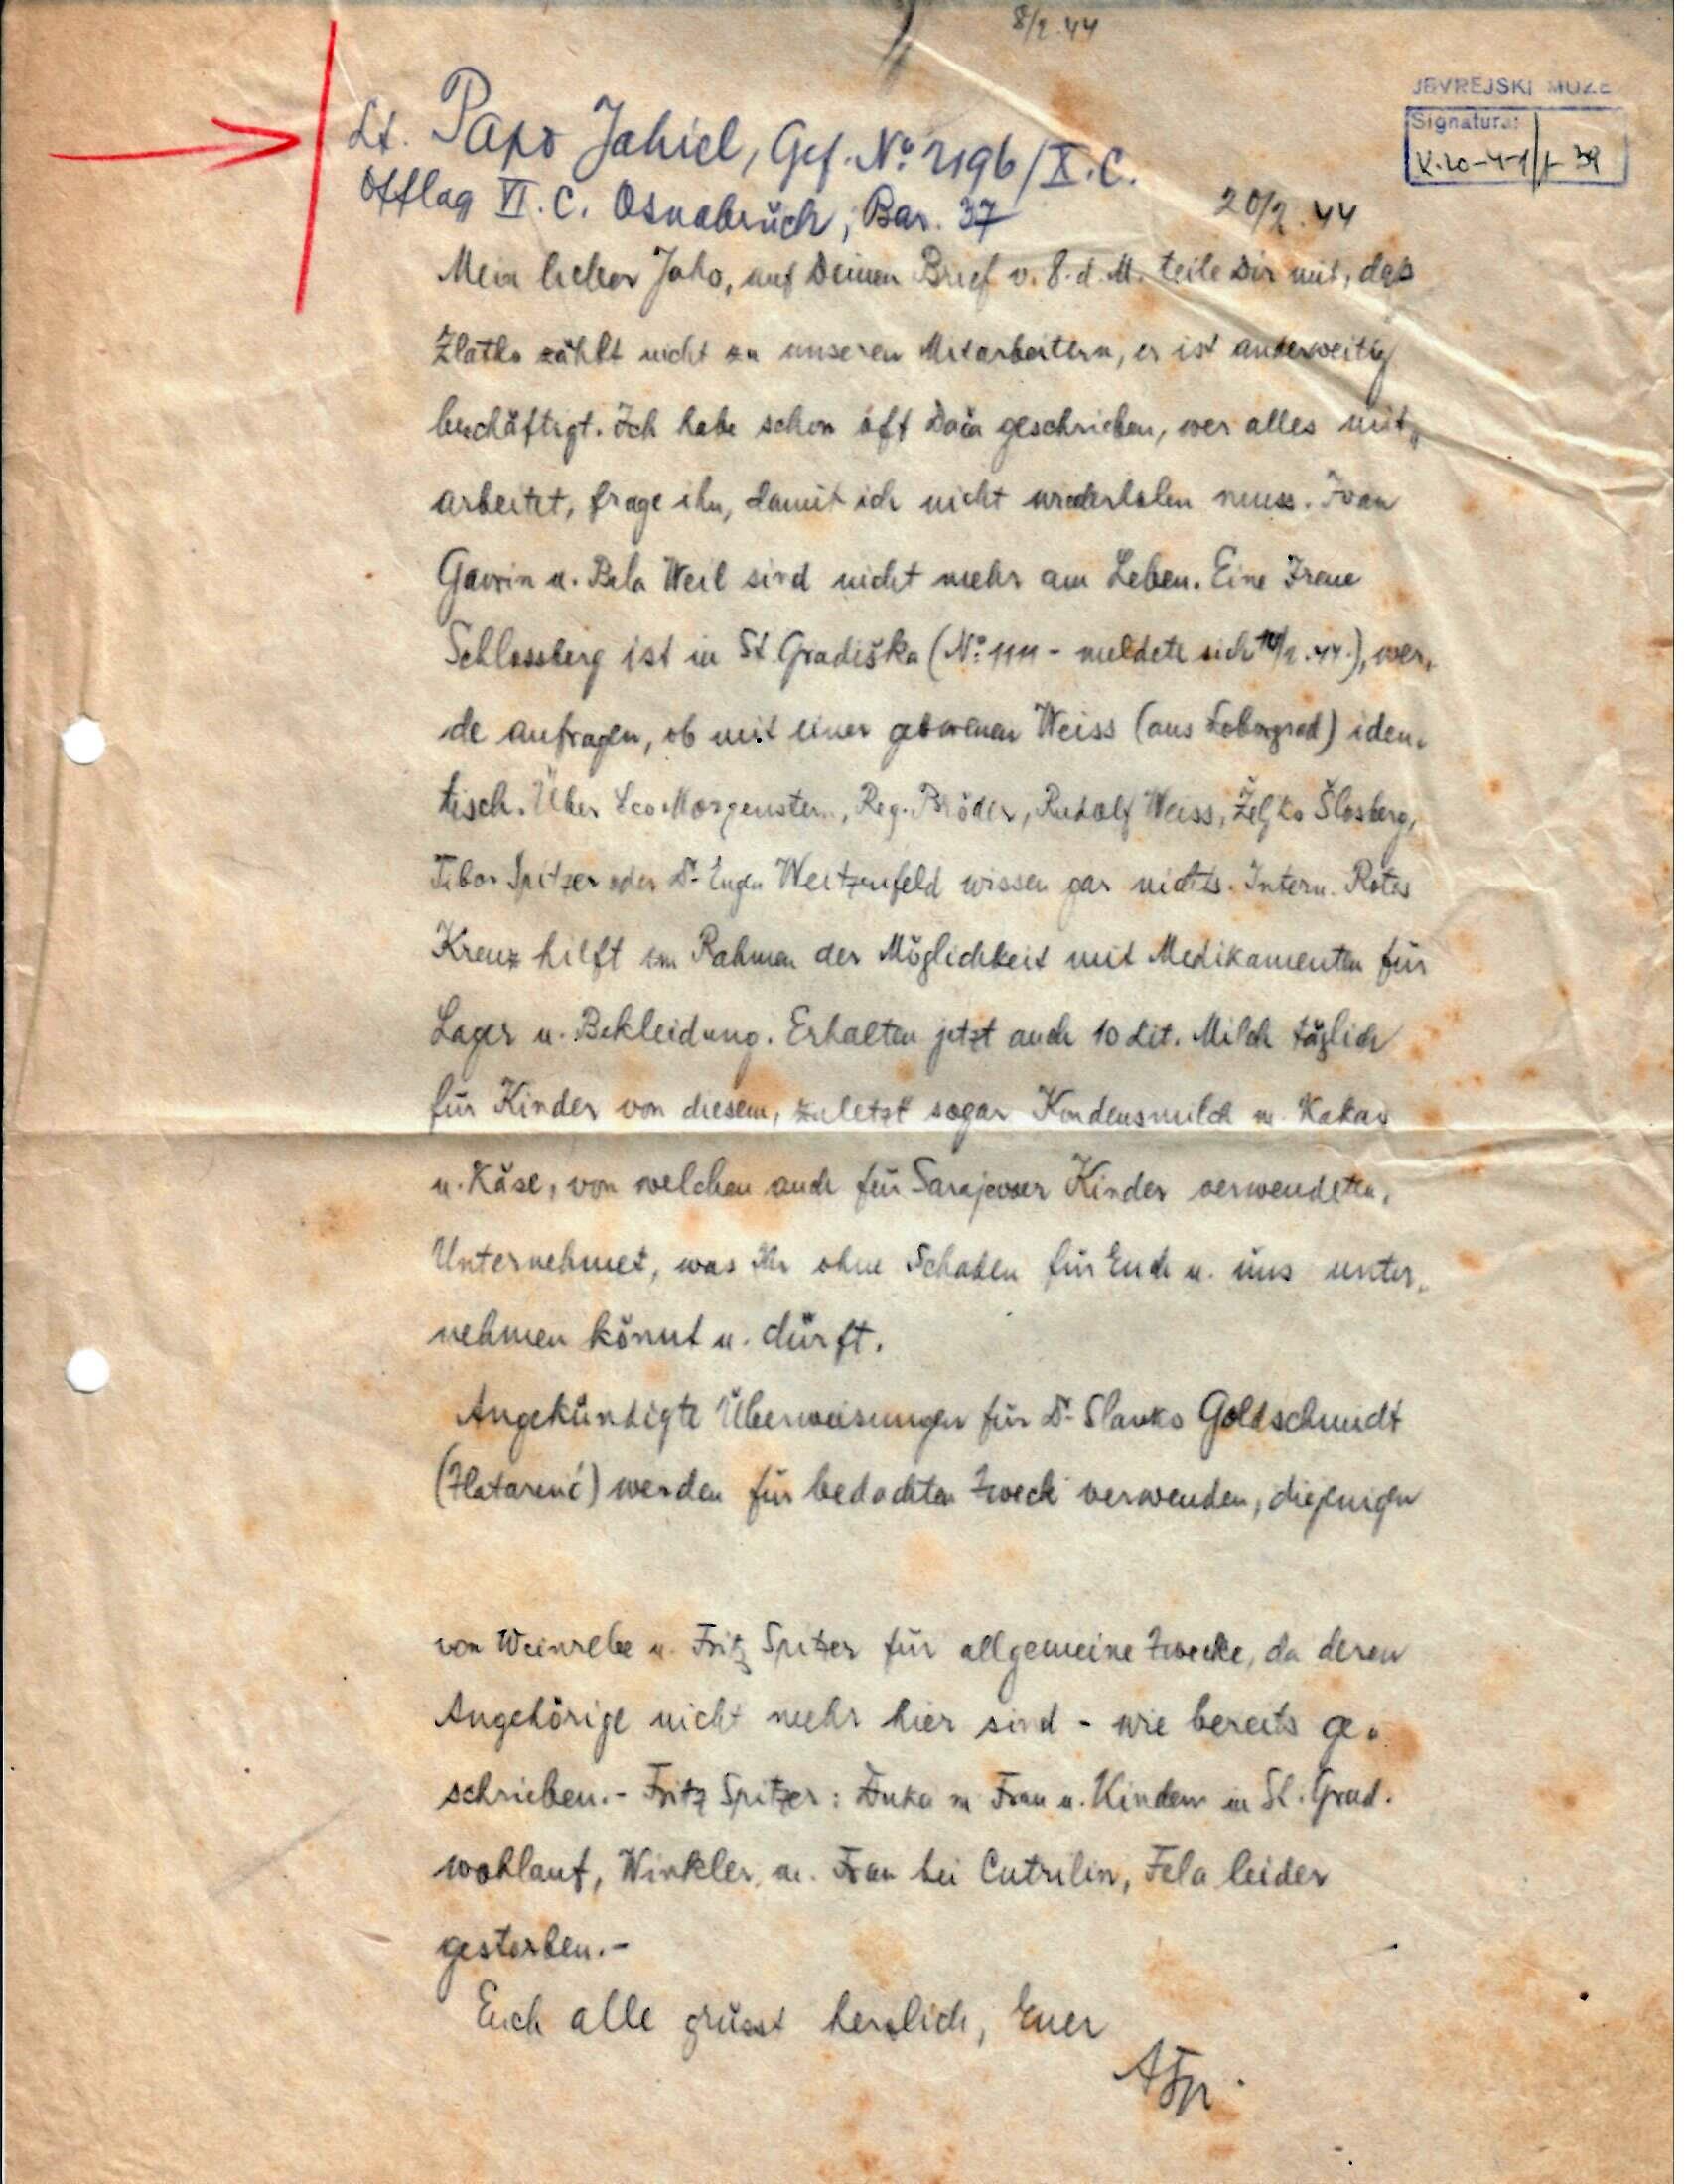 8/2.44
JEVREJSKI MUZE
Signatura:
Lt. Papo Jahiel, Gef. No. 2196/X.C.
Offlag VI.C. Osnabrück, Bar. 37
20/2.44
Mein lieber Jaho, auf Deinen Brief v. 8. d. M. teile Dir mit, daß
Zlatko zählt nicht zu unseren Mitarbeitern, er ist anderweitig
beschäftigt. Ich habe schon oft Dača geschrieben, wer alles mit-
arbeitet, frage ihn, damit ich nicht wiederholen muss. Ivan
Gavrin u. Bela Weil sind nicht mehr am Leben. Eine Irene
Schlossberg ist in St. Gradiška (No: 1111 - meldete sich /2.44.), wer-
de anfragen, ob mit einer geborenen Weiss (aus Loborgrad) iden-
tisch. Über Leo Morgenstern, Reg. Bröder, Rudolf Weiss, Željko Šlosberg,
Tibor Spitzer oder Dr. Eugen Weitzenfeld wissen gar nichts. Intern. Rotes
Kreuz hilft im Rahmen der Möglichkeit mit Medikamenten für
Lager u. Bekleidung. Erhalten jetzt auch 10 Lit. Milch täglich
für Kinder von diesem, zuletzt sogar Kondensmilch m. Kakao
u. Käse, von welchen auch für Sarajevoer Kinder verwendeten.
Unternehmet, was Ihr ohne Schaden für Euch u. uns unter-
nehmen könnt u. dürft.
Angekündigte Überweisungen für Dr. Slavko Goldschmidt
(Zlatarević) werden für bedachten Zweck verwenden, diejenigen
von Weinrebe u. Fritz Spitzer für allgemeine Zwecke, da deren
Angehörige nicht mehr hier sind - wie bereits ge-
schrieben.- Fritz Spitzer: Duka m. Frau u. Kindern in St. Grad.
wohlauf, Winkler m. Frau bei Cutrilin, Fela leider
gestorben.-
Euch alle grüsst herzlich, Euer